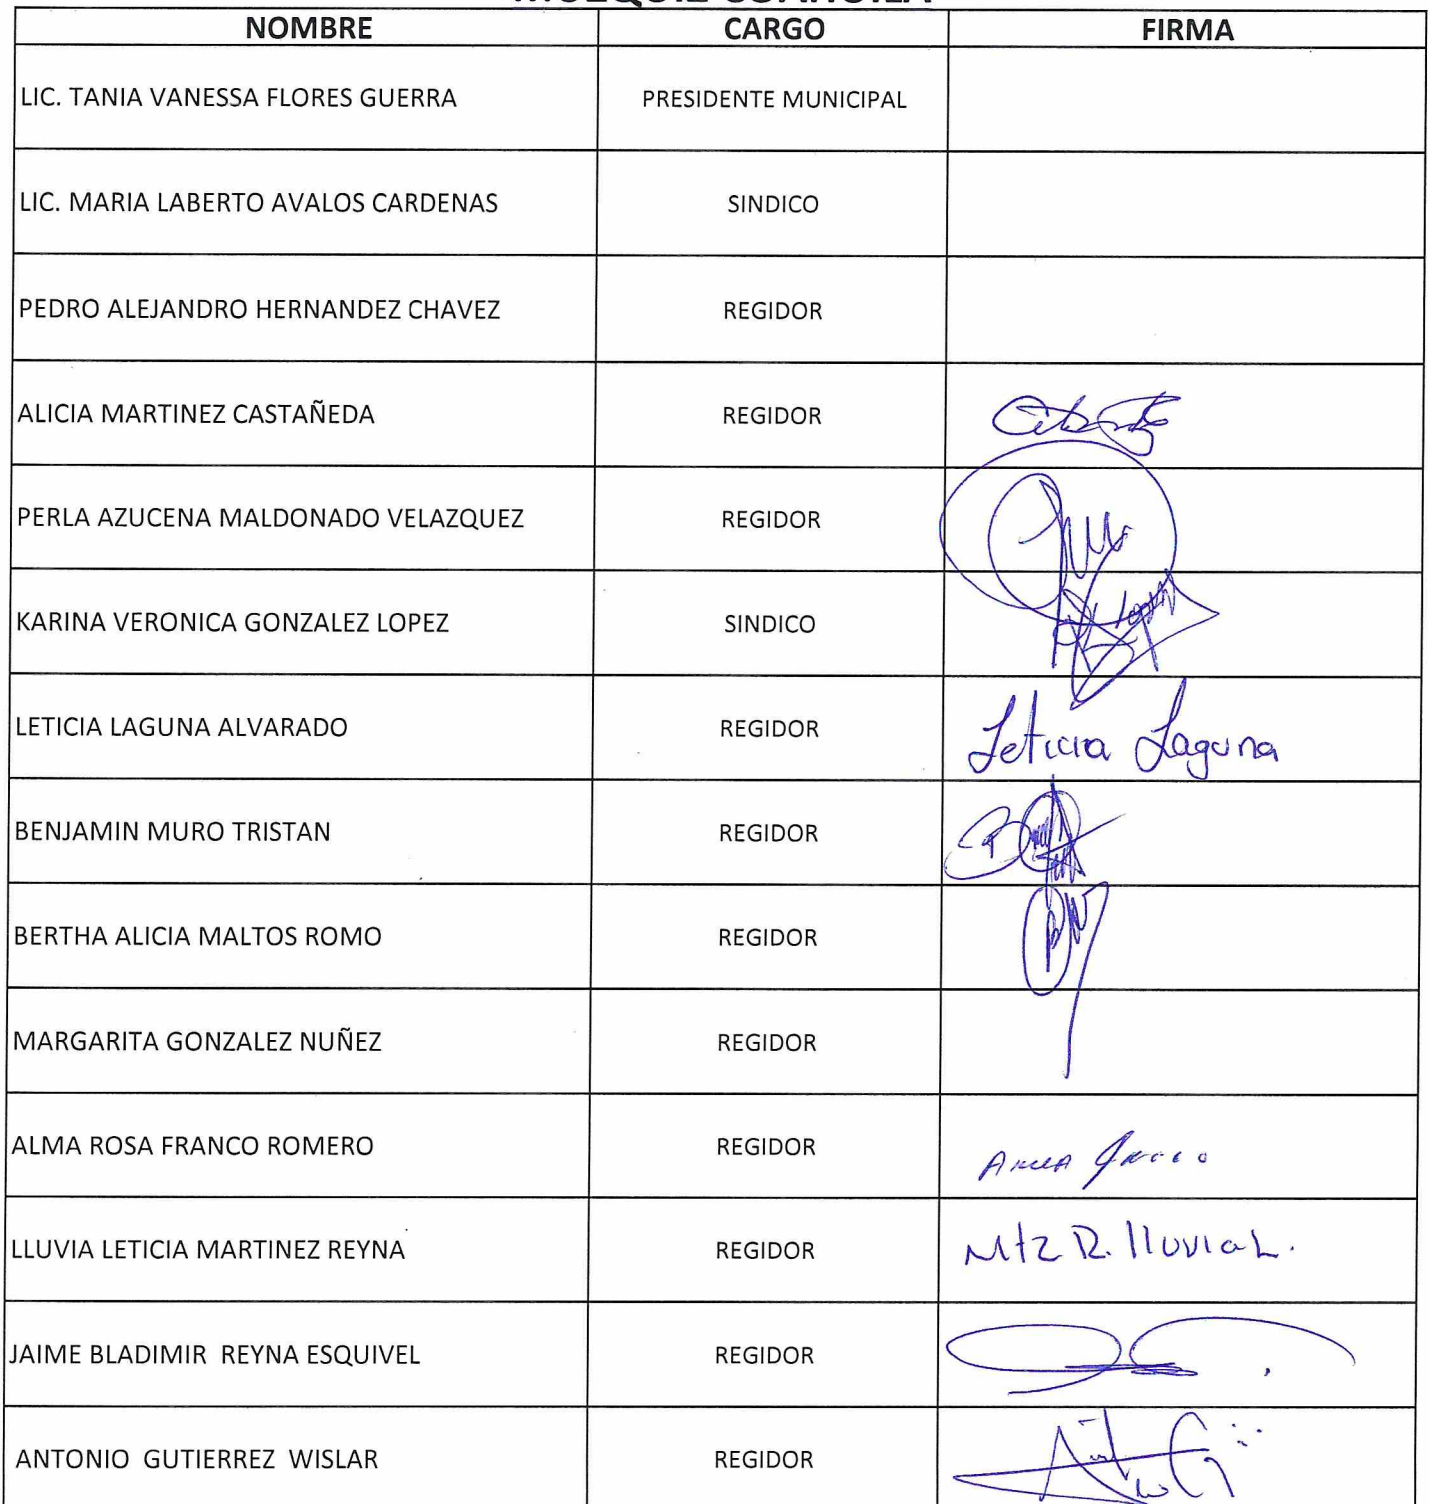 MUZQUIZ COAHUILA
NOMBRE CARGO FIRMA
LIC. TANIA VANESSA FLORES GUERRA PRESIDENTE MUNICIPAL
LIC. MARIA LABERTO AVALOS CARDENAS SINDICO
PEDRO ALEJANDRO HERNANDEZ CHAVEZ REGIDOR
ALICIA MARTINEZ CASTAÑEDA REGIDOR
PERLA AZUCENA MALDONADO VELAZQUEZ REGIDOR
KARINA VERONICA GONZALEZ LOPEZ SINDICO
LETICIA LAGUNA ALVARADO REGIDOR Leticia Laguna
BENJAMIN MURO TRISTAN REGIDOR
BERTHA ALICIA MALTOS ROMO REGIDOR
MARGARITA GONZALEZ NUÑEZ REGIDOR
ALMA ROSA FRANCO ROMERO REGIDOR
LLUVIA LETICIA MARTINEZ REYNA REGIDOR Mtz R. lluvia L.
JAIME BLADIMIR REYNA ESQUIVEL REGIDOR
ANTONIO GUTIERREZ WISLAR REGIDOR